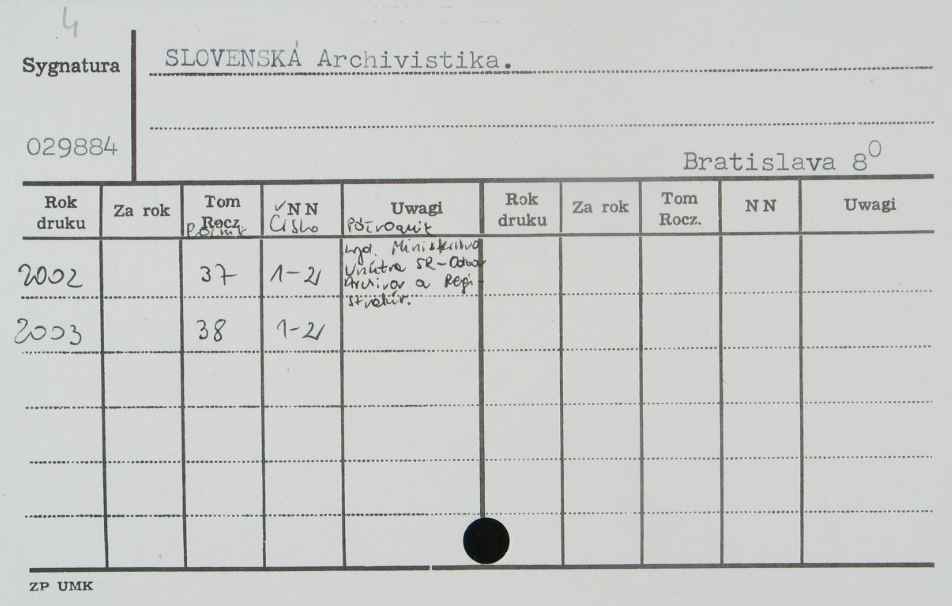 4
Sygnatura
SLOVENSKÁ Archivistika.
029884
Bratislava 8⁰
Rok druku Za rok Tom Rocz. NN Uwagi Rok druku Za rok Tom Rocz. NN Uwagi
Ročník Číslo Półrocznik
wyd. Ministerstvo
2002 37 1-2 vnútra SR-Odbor
Archívov a Regi-
stratúr.
2003 38 1-2
ZP UMK